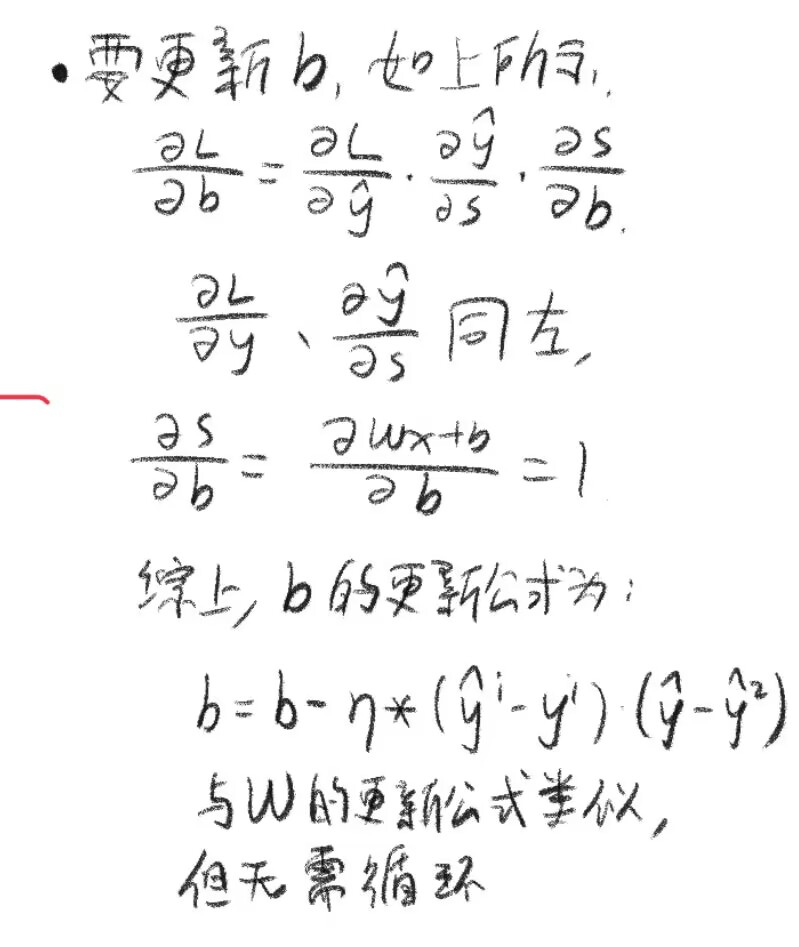 • 要更新b, 如上所示,
∂L/∂b = ∂L/∂ŷ · ∂ŷ/∂s · ∂s/∂b.
∂L/∂y、∂ŷ/∂s 同左,
∂s/∂b = ∂wx+b/∂b = 1
综上, b的更新公式为:
b = b - η * (ŷⁱ - yⁱ) · (ŷ - ŷ²)
与W的更新公式类似,
但无需循环